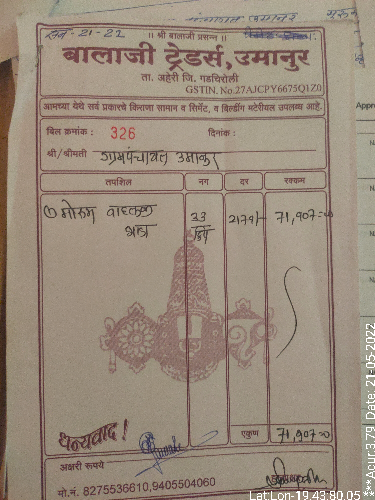 सन-21-22
॥ श्री बालाजी प्रसन्न ॥
बालाजी ट्रेडर्स,उमानुर
ता. अहेरी जि. गडचिरोली
GSTIN. No.27AJCPY6675Q1Z0
आमच्या येथे सर्व प्रकारचे किराणा सामान व सिमेंट, व बिल्डींग मटेरीयल उपलब्ध आहे.
बिल क्रमांक : 326 दिनांक :
श्री/श्रीमती ग्रामपंचायत
तपशिल नग दर रक्कम
① मोरम वाहतुक 33 2179/- 71,907=00
धन्यवाद !
एकुण 71,907=00
अक्षरी रूपये
मो.नं. 8275536610,9405504060
Lat,Lon-19.43,80.05
***Acur:3.79 Date: 21-05-2022